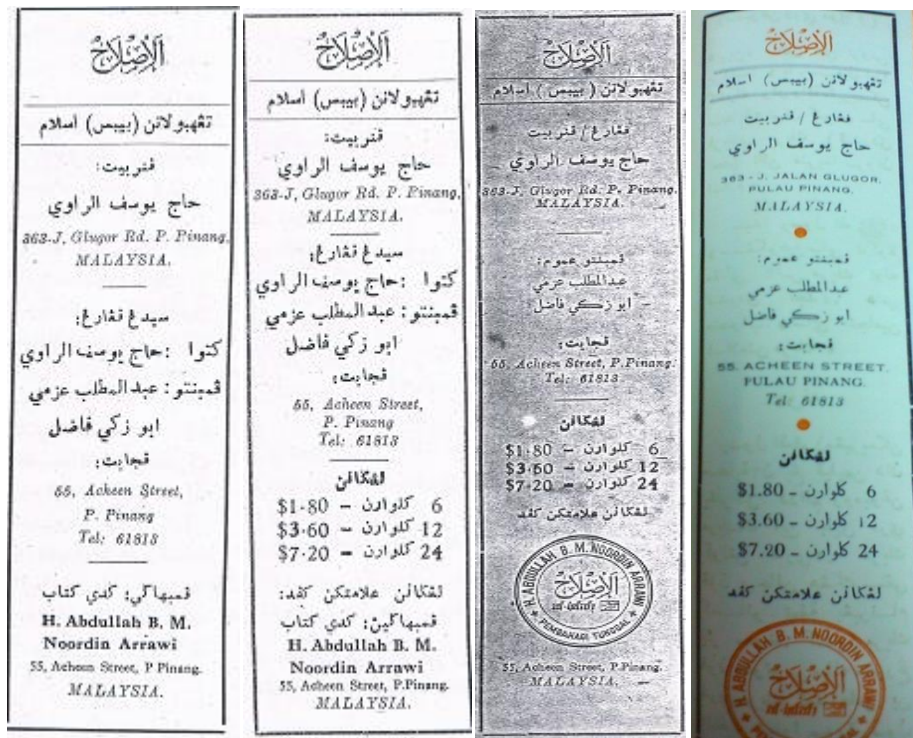 الإصلاح
تڠهبولانن (بيبس) اسلام
ڤنربيت:
حاج يوسف الراوي
363-J, Glugor Rd. P. Pinang,
MALAYSIA.
سيدڠ ڤڠارڠ:
كتوا : حاج يوسف الراوي
ڤمبنتو : عبدالمطلب عزمي
ابو زكي فاضل
ڤجابت:
55, Acheen Street,
P. Pinang
Tel: 61813
ڤمبهاكي: كدي كتاب
H. Abdullah B. M.
Noordin Arrawi
55, Acheen Street, P Pinang.
MALAYSIA.
الإصلاح
تڠهبولانن (بيبس) اسلام
ڤنربيت:
حاج يوسف الراوي
363-J, Glugor Rd. P. Pinang,
MALAYSIA.
سيدڠ ڤڠارڠ:
كتوا : حاج يوسف الراوي
ڤمبنتو : عبدالمطلب عزمي
ابو زكي فاضل
ڤجابت:
55, Acheen Street,
P. Pinang
Tel: 61813
لڠكانن
6 كلوارن – $1·80
12 كلوارن – $3·60
24 كلوارن – $7·20
لڠكانن علامتكن كفد:
ڤمبهاكين: كدي كتاب
H. Abdullah B. M.
Noordin Arrawi
55, Acheen Street, P.Pinang.
MALAYSIA.
الإصلاح
تڠهبولانن (بيبس) اسلام
ڤڠارڠ / ڤنربيت
حاج يوسف الراوي
363-J, Glugor Rd. P. Pinang.
MALAYSIA.
ڤمبنتو عموم:
عبدالمطلب عزمي
ابو زكي فاضل
ڤجابت:
55, Acheen Street, P.Pinang.
Tel: 61813
لڠكانن
6 كلوارن – $1·80
12 كلوارن – $3·60
24 كلوارن – $7·20
لڠكانن علامتكن كفد
H. ABDULLAH B. M. NOORDIN ARRAWI
الإصلاح
al-Islah
PEMBAHAGI TUNGGAL
55, Acheen Street, P.Pinang.
MALAYSIA.
الإصلاح
تڠهبولانن (بيبس) اسلام
ڤڠارڠ / ڤنربيت
حاج يوسف الراوي
363 - J. JALAN GLUGOR.
PULAU PINANG.
MALAYSIA.
ڤمبنتو عموم:
عبدالمطلب عزمي
ابو زكي فاضل
ڤجابت:
55. ACHEEN STREET.
PULAU PINANG.
Tel: 61813
لڠكانن
6 كلوارن – $1.80
12 كلوارن – $3.60
24 كلوارن – $7.20
لڠكانن علامتكن كفد
H ABDULLAH B. M. NOORDIN ARRAWI
الإصلاح
al-Islah